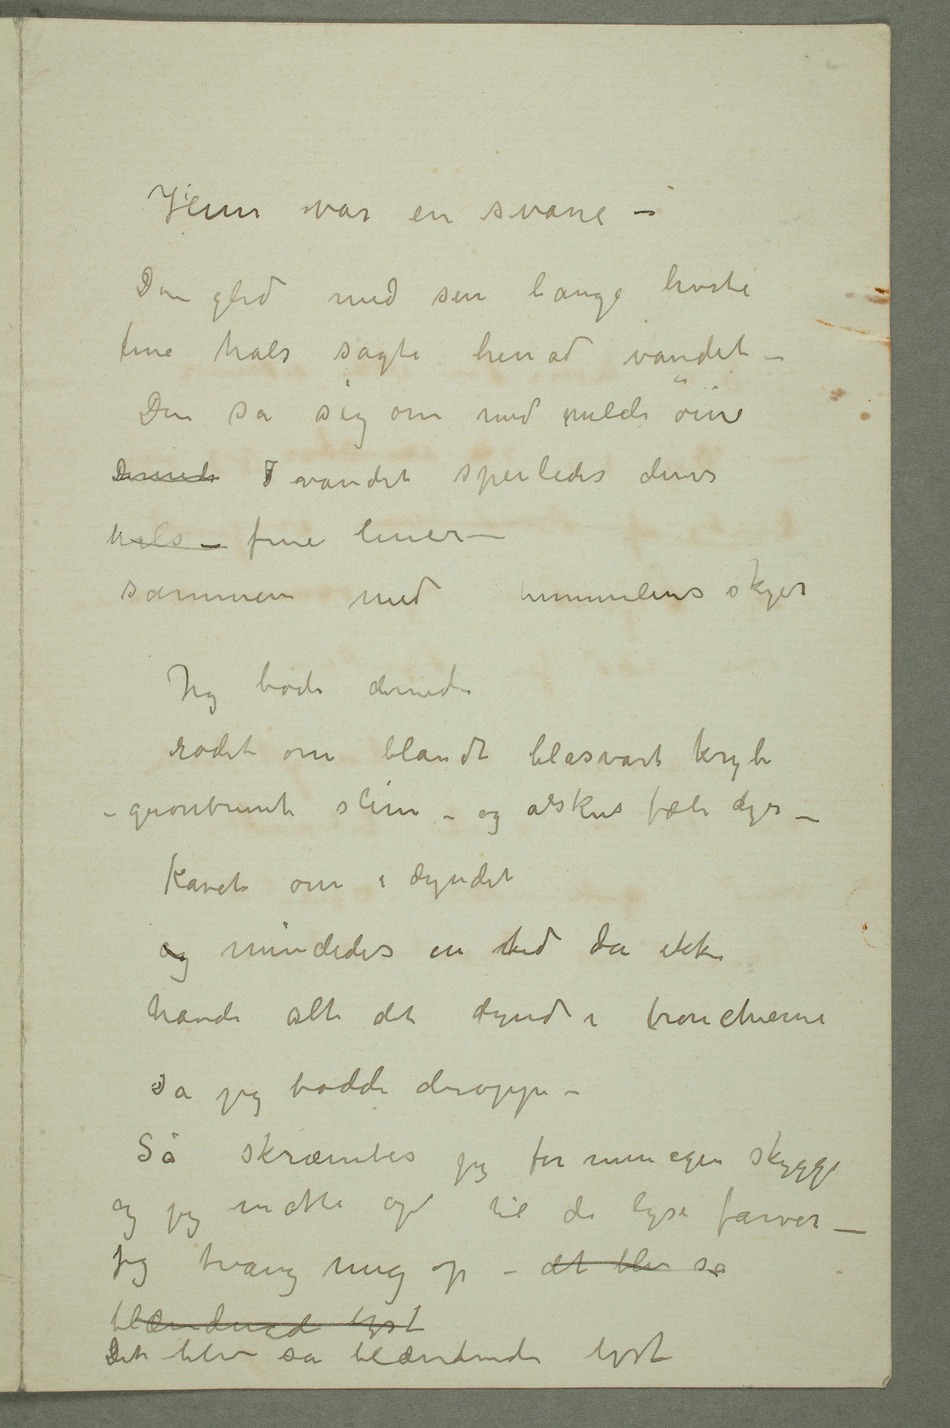 Hun var en svane –
Den gled med sin lange hvite
fine hals sagte henad vandet –
Den så sig om med milde öine
Dernede I vandet speiledes dens
hals – fine linier –
sammen med himmelens skyer
Jeg bode dernede
rodet om blandt blåsvart kryb
– grønbrunt slim – og alskens fæle dyr –
Kavet om i dyndet
og mindedes en tid da ikke
havde alt det dynd i bronchierne
Da jeg bodde deroppe –
Så skræmtes jeg for min egen skygge
og jeg måtte op til de lyse farver –
Jeg tvang mig op – det blev så
blændende lyst
Det blev så blændende lyst